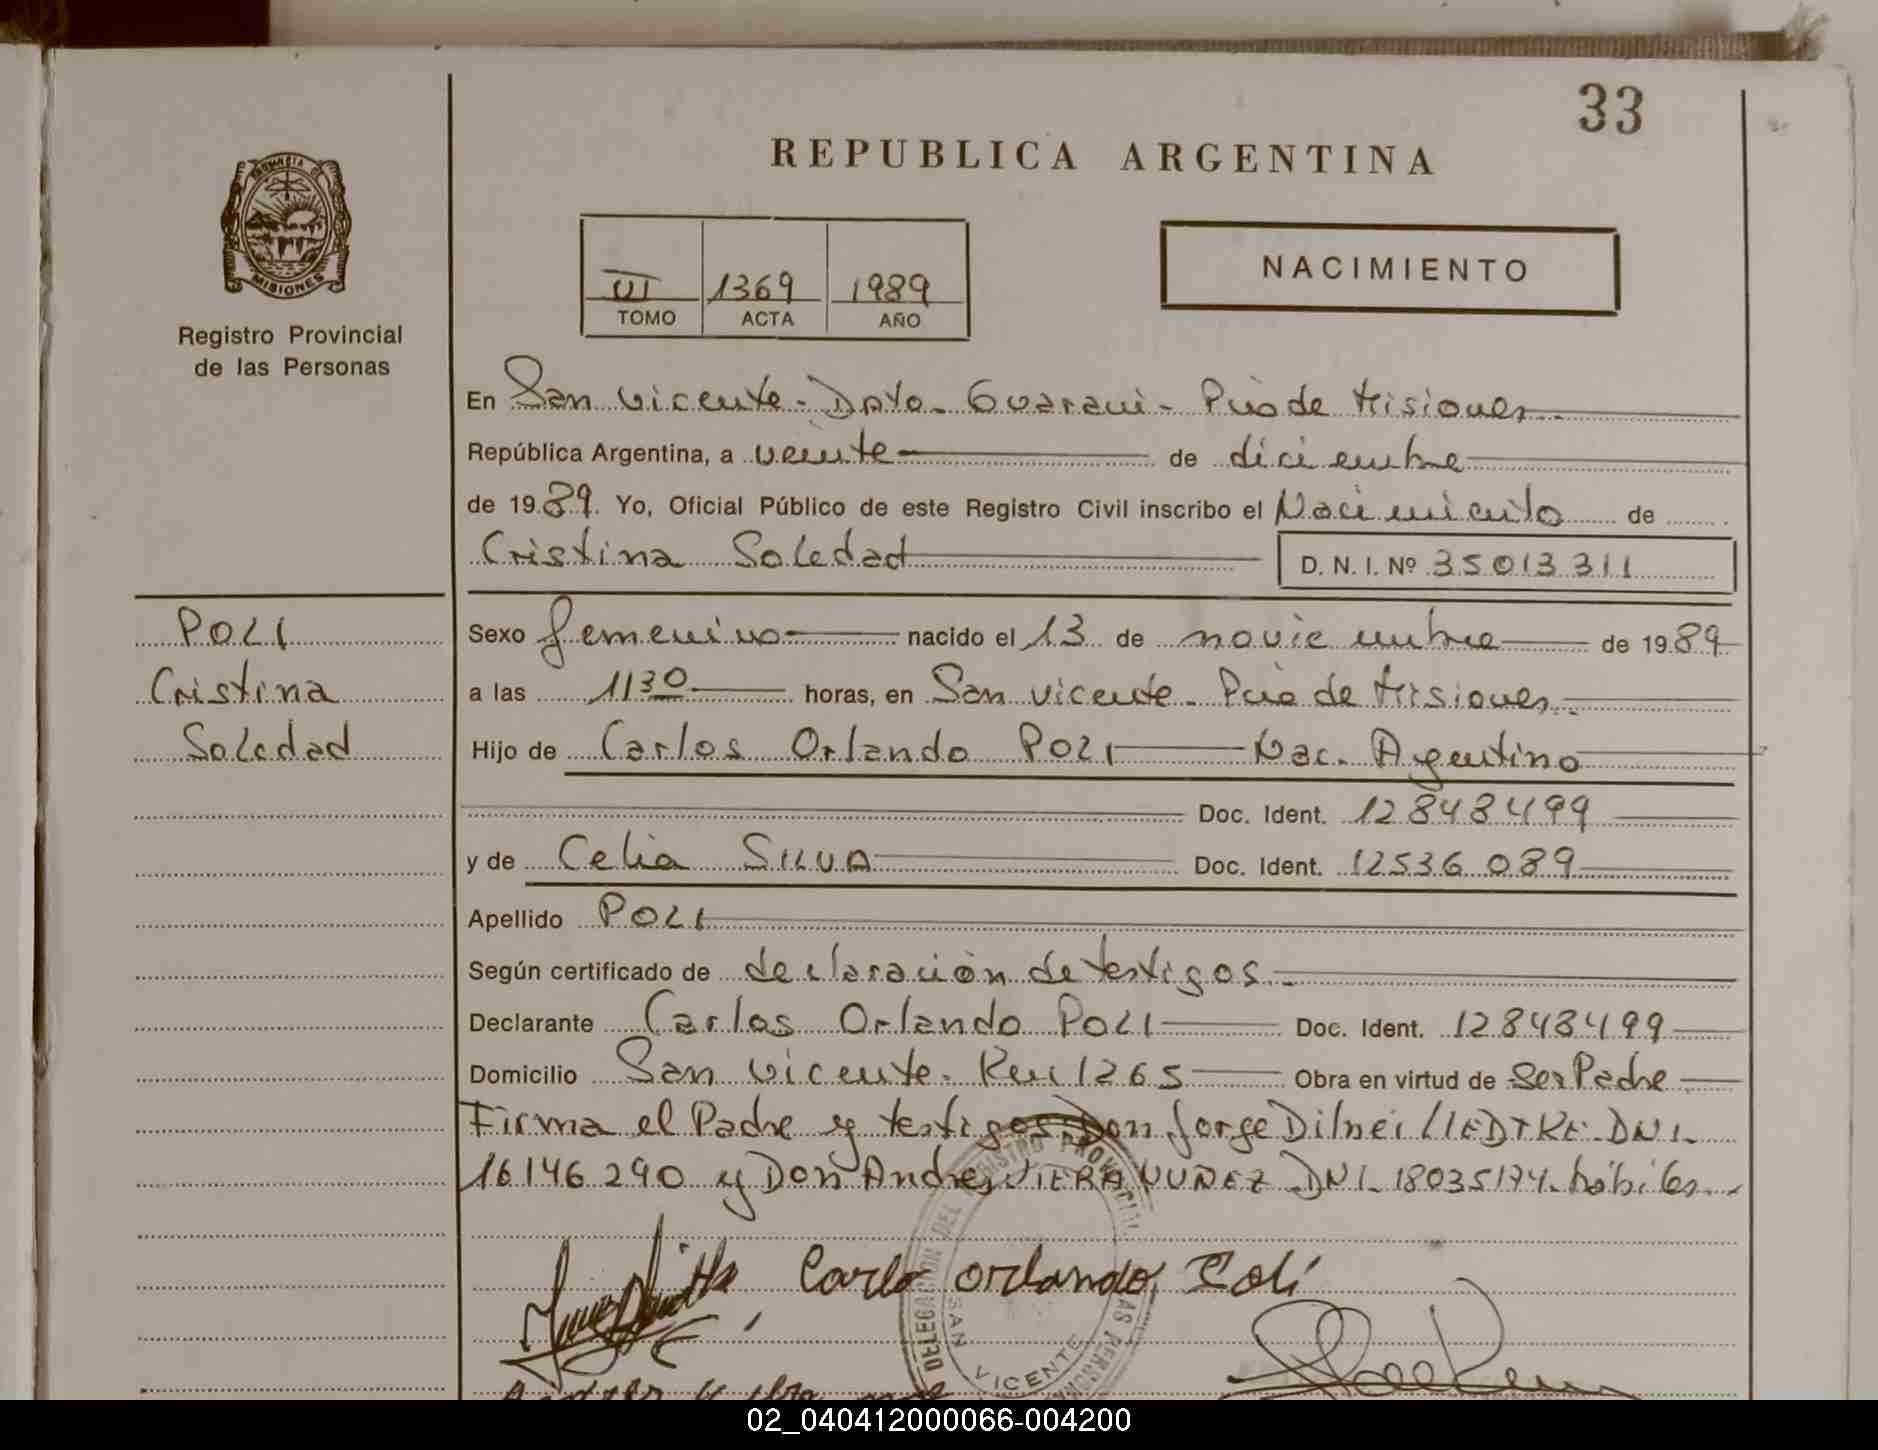 33
REPUBLICA ARGENTINA
PROVINCIA DE MISIONES
Registro Provincial
de las Personas
III 1369 1989
TOMO ACTA AÑO
NACIMIENTO
En San Vicente - Dpto. Guaraní - Pcia de Misiones
República Argentina, a veinte de diciembre
de 1989. Yo, Oficial Público de este Registro Civil inscribo el Nacimiento de
Cristina Soledad D. N. I. Nº 35013311
POLI
Cristina
Soledad
Sexo femenino nacido el 13 de noviembre de 1989
a las 1130 horas, en San Vicente - Pcia de Misiones
Hijo de Carlos Orlando POLI Nac. Argentino
Doc. Ident. 12848499
y de Celia SILVA Doc. Ident. 12536089
Apellido POLI
Según certificado de declaración de testigos.
Declarante Carlos Orlando POLI Doc. Ident. 12848499
Domicilio San Vicente. Km 1265 Obra en virtud de Ser Padre
Firma el Padre y testigos Don Jorge Dilnei LIEDTKE DNI.
16146290 y Don Andres VIERA NUÑEZ DNI. 18035174. hábiles
Carlo orlando Poli
DELEGACION DEL REGISTRO PROVINCIAL DE LAS PERSONAS
SAN VICENTE
02_040412000066-004200